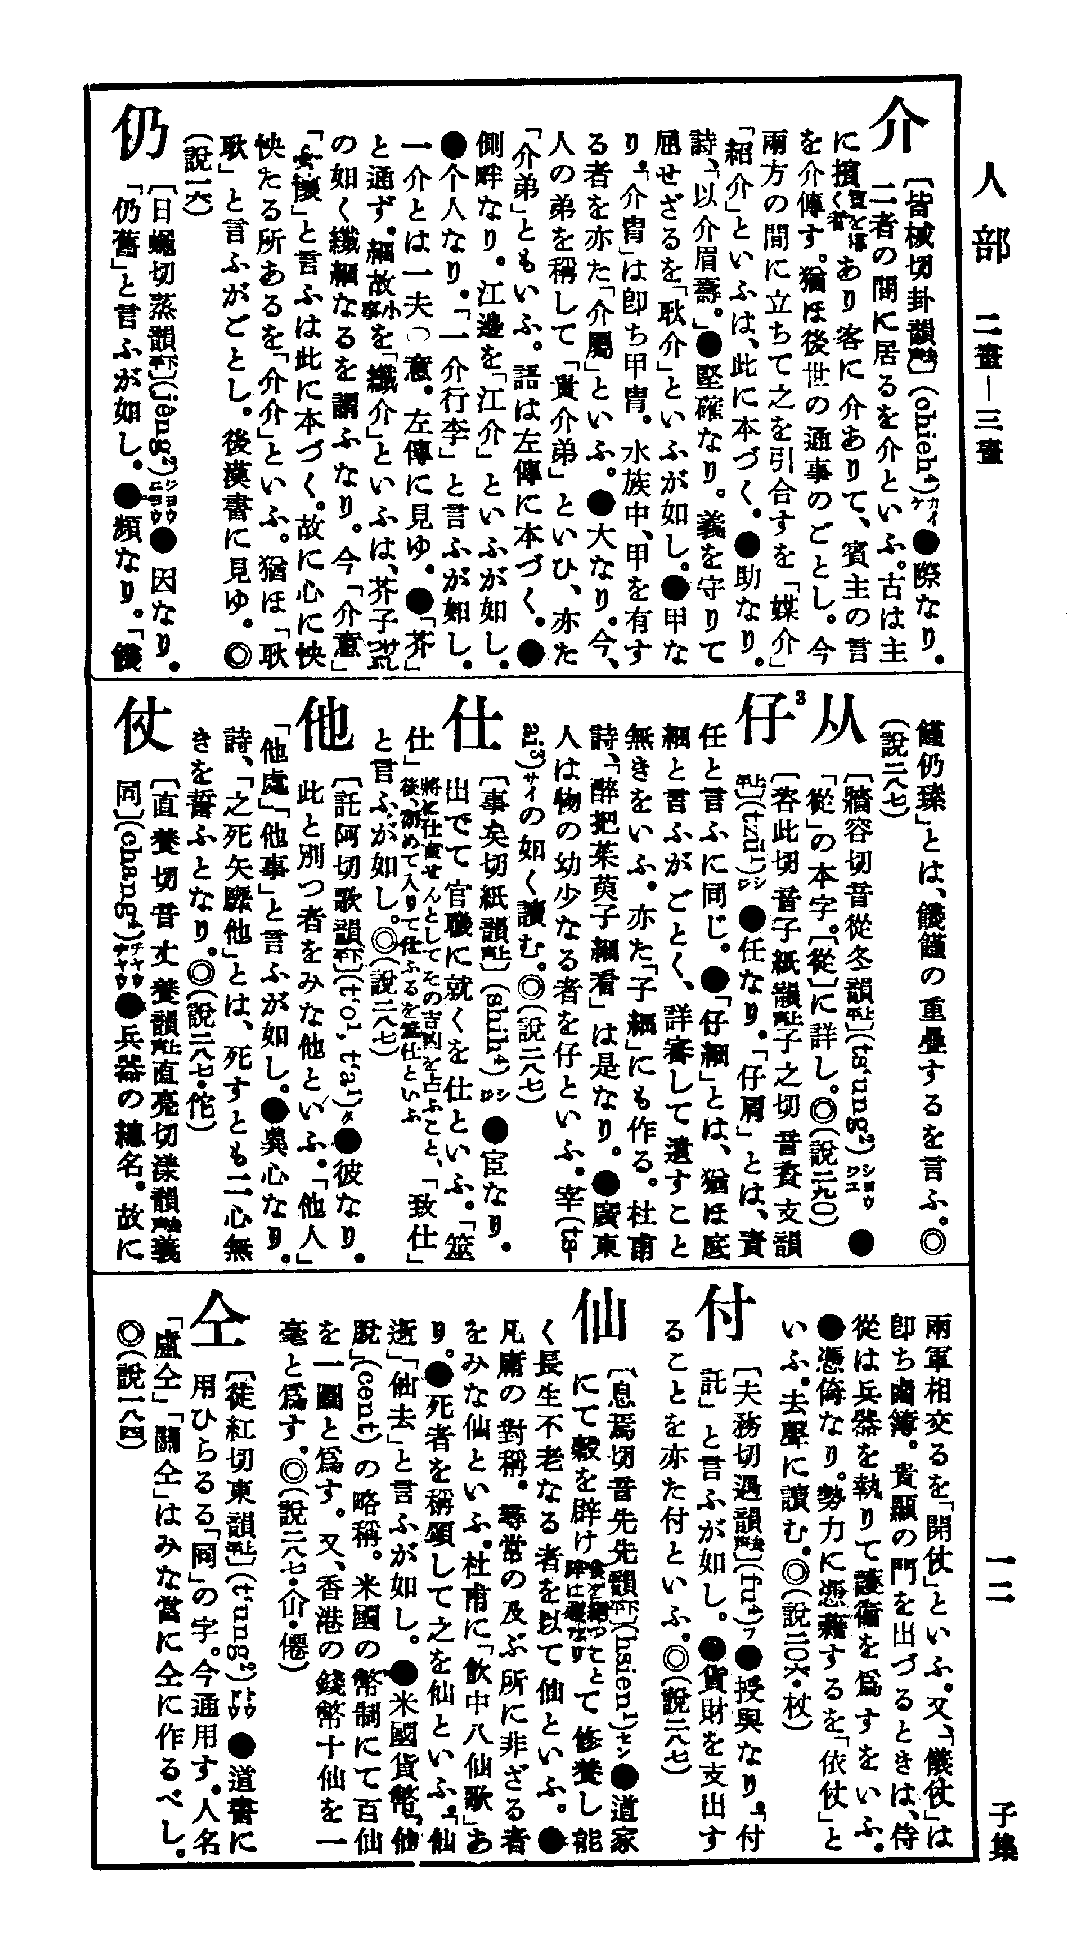 人部 二畫—三畫
一二
子集
介
〔皆械切卦韻去聲〕(chieh⁴)カイケ●際なり。
二者の間に居るを介といふ。古は主
に擯 あり客に介ありて、賓主の言
を介傳す。猶ほ後世の通事のごとし。今
兩方の間に立ちて之を引合すを「媒介」
「紹介」といふは、此に本づく。●助なり。
詩、「以介眉壽。」●堅確なり。義を守りて
屈せざるを「耿介」といふが如し。●甲な
り。「介冑」は卽ち甲冑。水族中、甲を有す
る者を亦た「介屬」といふ。●大なり。今、
人の弟を稱して「貴介弟」といひ、亦た
「介弟」ともいふ。語は左傳に本づく。●
側畔なり。江邊を「江介」といふが如し。
●个人なり。「一介行李」と言ふが如し。
一介とは一夫の意。左傳に見ゆ。●「芥」
と通ず。細故小事を「纖介」といふは、芥子
の如く纖細なるを謂ふなり。今「介意」
「介懷」と言ふは此に本づく。故に心に怏
怏たる所あるを「介介」といふ。猶ほ「耿
耿」と言ふがごとし。後漢書に見ゆ。◎
(說二六)
仍
〔日蠅切蒸韻下平〕(jêng²)ショウ ●因なり。
「仍舊」と言ふが如し。●頻なり。「饑
饉仍臻」とは、饑饉の重疊するを言ふ。◎
(說二八七)
从
〔牆容切音從冬韻上平〕(ts'ung²)ショウジュ●
「從」の本字。〔從〕に詳し。◎(說二九〇)
仔³
〔咨此切音子紙韻上聲子之切音玆支韻
上平〕(tzŭ¹)シ ●任なり。「仔肩」とは、責
任と言ふに同じ。●「仔細」とは、猶ほ底
細と言ふがごとく、詳審して遺すこと
無きをいふ。亦た「子細」にも作る。杜甫
詩、「醉把茱萸子細看」は是なり。●廣東
人は物の幼少なる者を仔といふ。宰(ts-
ai³)サイの如く讀む。◎(說二八七)
仕
〔事矣切紙韻上聲〕(shih⁴)シジ ●宦なり。
出でて官職に就くを仕といふ。「筮
仕」將に仕宦せんとしてその吉凶を占ふこと、後、初めて入りて仕ふるを筮仕といふ「致仕」
と言ふが如し。◎(說二八七)
他
〔託阿切歌韻下平〕(t'o¹, t'a¹)タ●彼なり。
此と別つ者をみな他といふ。「他人」
「他處」「他事」と言ふが如し。●異心なり。
詩、「之死矢靡他」とは、死すとも二心無
きを誓ふとなり。◎(說二八七・佗)
仗
〔直養切音丈養韻上聲直亮切漾韻去聲義
同〕(chang⁴)チャウ ●兵器の總名。故に
兩軍相交るを「開仗」といふ。又、「儀仗」は
卽ち鹵簿。貴顯の門を出づるときは、侍
從は兵器を執りて護衞を爲すをいふ。
●憑倚なり。勢力に憑藉するを「依仗」と
いふ。去聲に讀む。◎(說二〇六・杖)
付
〔夫務切遇韻去聲〕(fu⁴)フ●授與なり。「付
託」と言ふが如し。●貨財を支出す
ることを亦た付といふ。◎(說二八七)
仙
〔息焉切音先先韻下平〕(hsien¹)セン●道家
にて穀を辟け て修養し能
く長生不老なる者を以て仙といふ。●
凡庸の對稱。尋常の及ぶ所に非ざる者
をみな仙といふ。杜甫に「飮中八仙歌」あ
り。●死者を稱頌して之を仙といふ。「仙
逝」「仙去」と言ふが如し。●米國貨幣「仙
脫」(cent)の略稱。米國の幣制にて百仙
を一圓と爲す。又、香港の錢幣十仙を一
毫と爲す。◎(說二八七・仚・僊)
仝
〔徒紅切東韻上平〕(t'ung²)トウ ●道書に
用ひらるる「同」の字。今通用す。人名
「盧仝」「關仝」はみな當に仝に作るべし。
◎(說一八四)